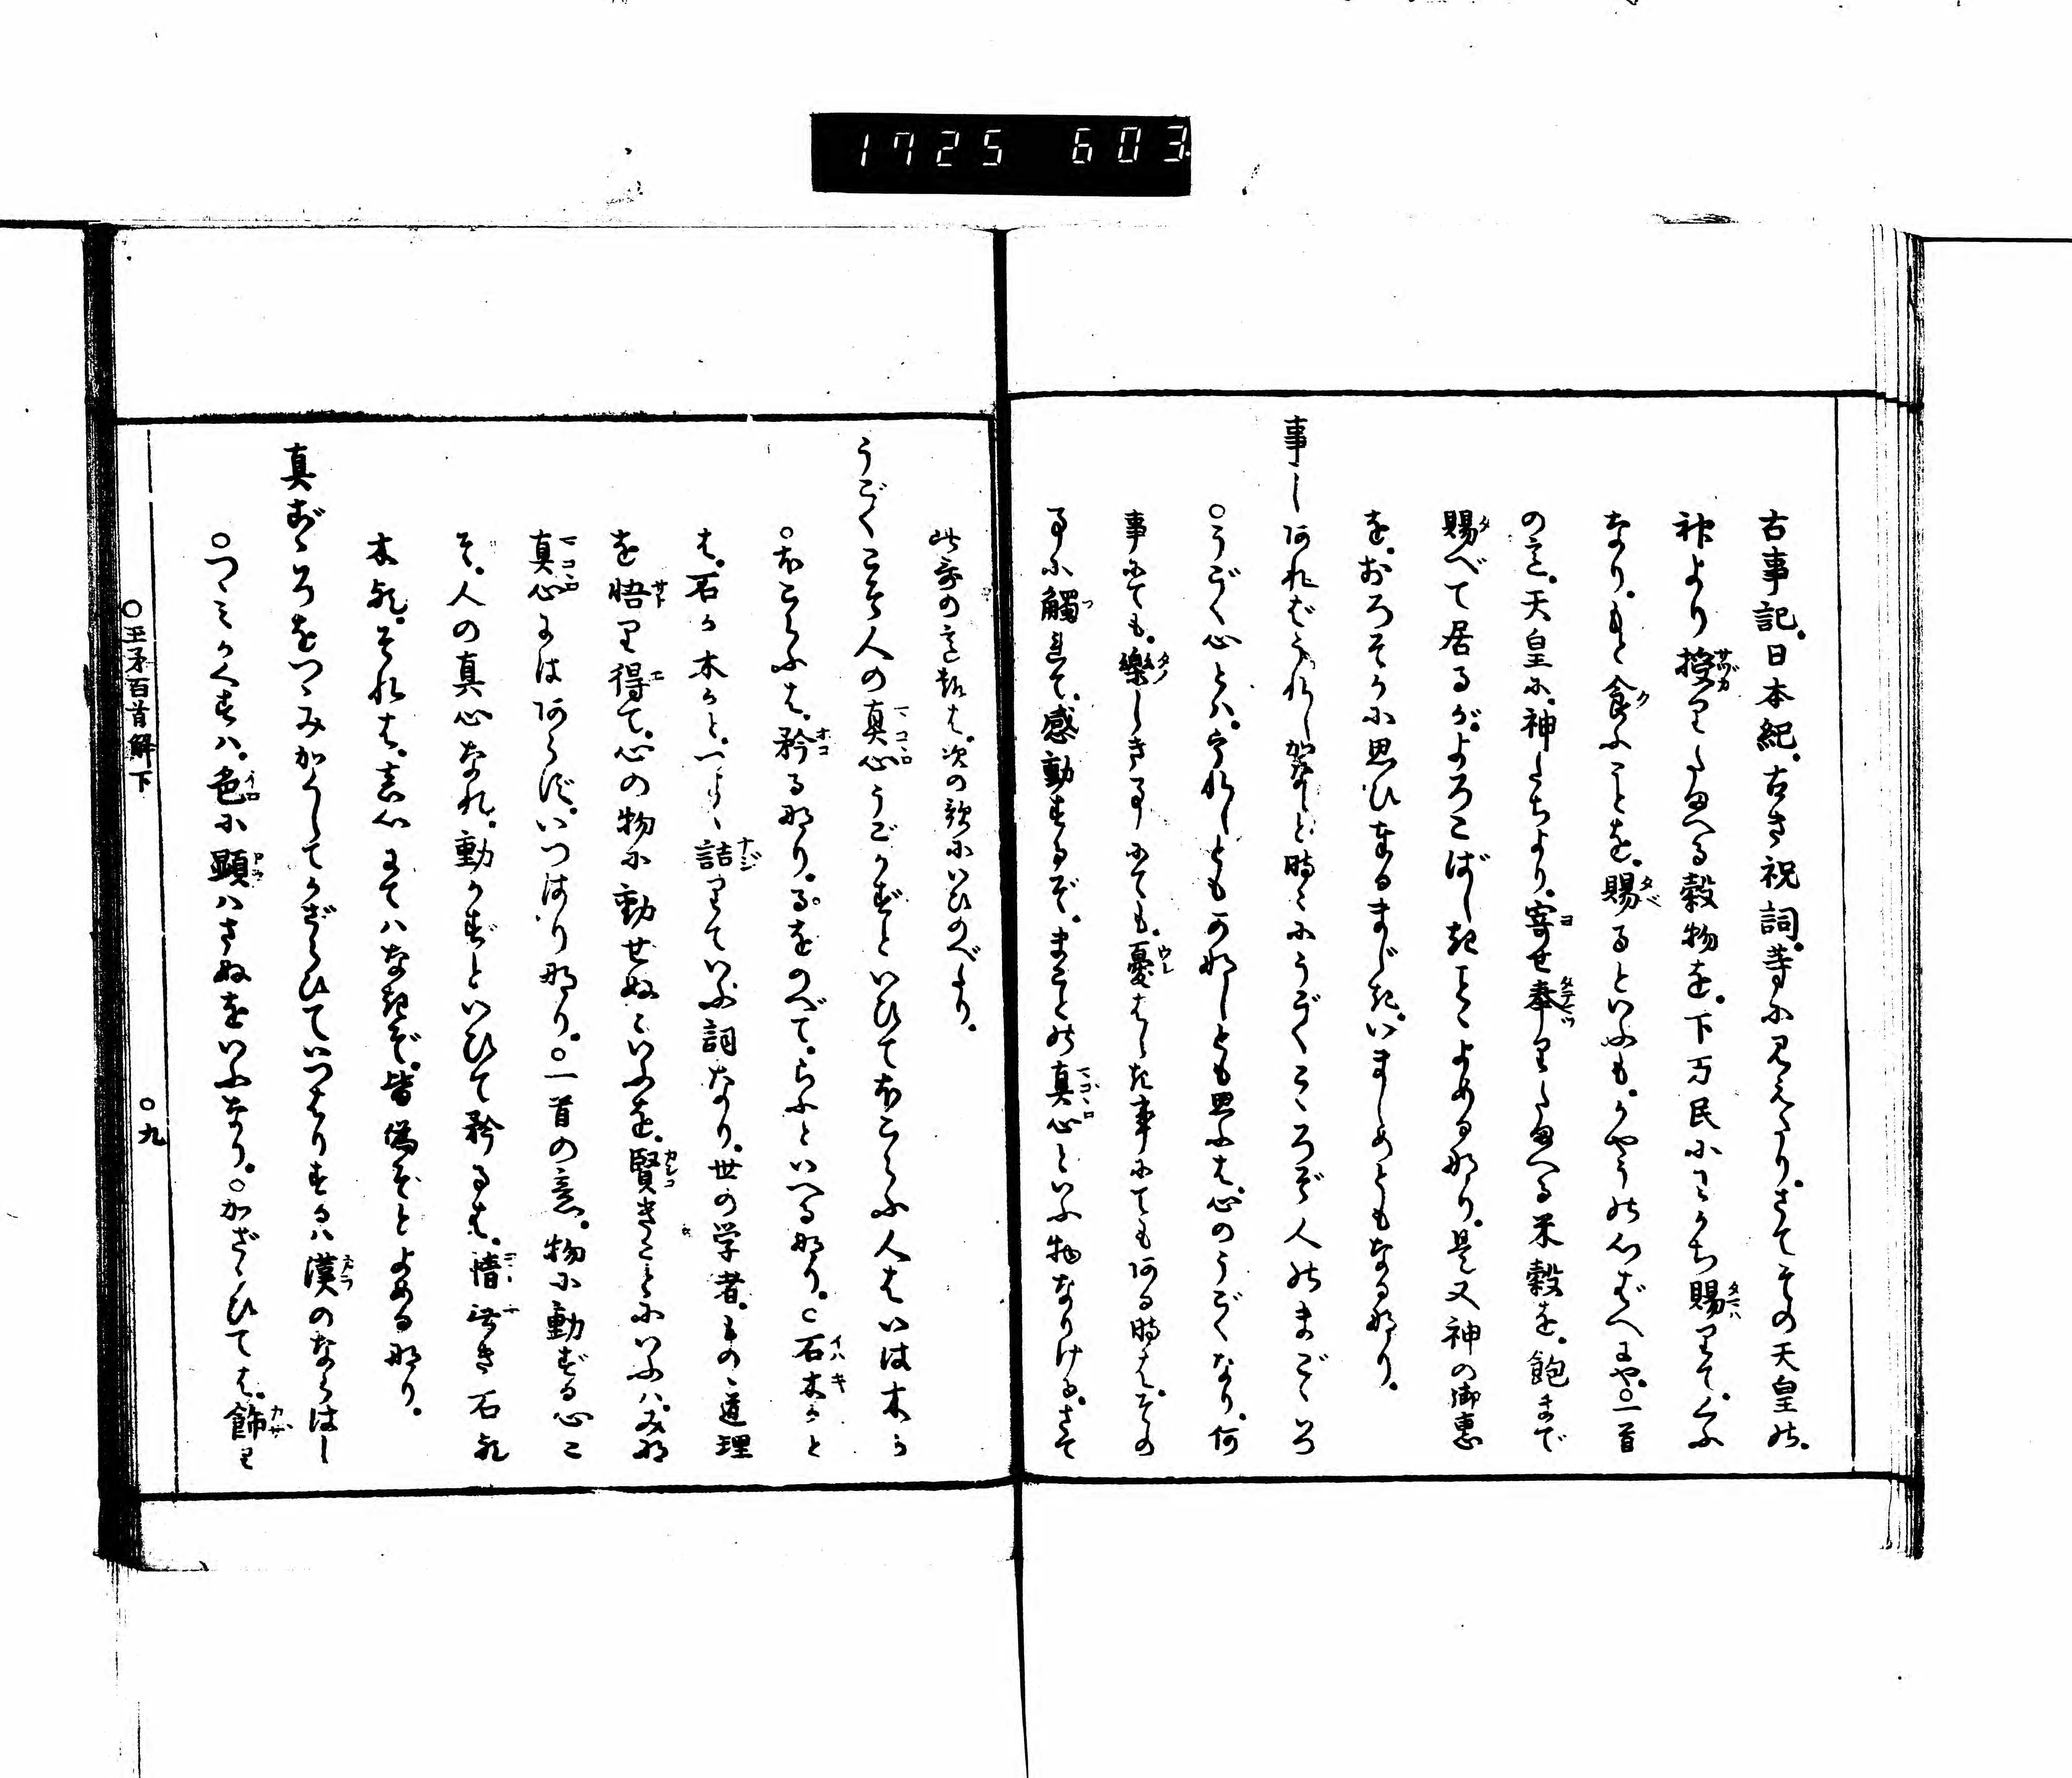 1725 603
古事記。日本紀。古き祝詞。等に見えたり。さてその天皇の。
神より授りたまへる穀物を。下万民にわかち賜りて。くふ
なり。もと食ふことを。賜るといふも。かやうの心ばへにや。○一首
の意。天皇に。神たちより。寄せ奉りたまへる米穀を。飽まで
賜べて居るが。よろこばしきことゝよめる那り。是又神の御恵
を。おろそかに思ひまるまじき。いましめともなる那り。
事しあればうれしかなしと時々にうごくこゝろぞ人のまごゝろ
○うごく心とハ。うれしともかなしとも思ふは。心のうごくなり。何
事にても。樂しき事にても。憂はしき事にてもある時は。その
事に觸れて。感動するぞ。まことの真心といふ物なりける。さて
此哥の意趣は。次の歌にいひのべたり。
うごくこそ人の真心うごかずといひてほこらふ人はいは木か
○ほこらふは。矜る那り。るをのべて。らふといへる那り。○石木かと
は。石か木かと。一トつ詰りていふ詞なり。世の学者。もの道理
を悟り得て。心の物に動せぬといふを。賢きことにいふハ。みな
真心にはあらず。いつはり那り。○一首の意。物に動ずる心こ
そ。人の真心なれ。動かずといひて矜るは。情無き石那
木那。それは。真心にてハなきぞ。皆偽ぞとよめる那り。
真ごゝろをつゝみかくしてかざらひていつはりするハ漢のならはし
○つゝミかくすハ。色に顕ハさぬをいふなり。○かざらひては。飾り
○玉矛百首解下
○九